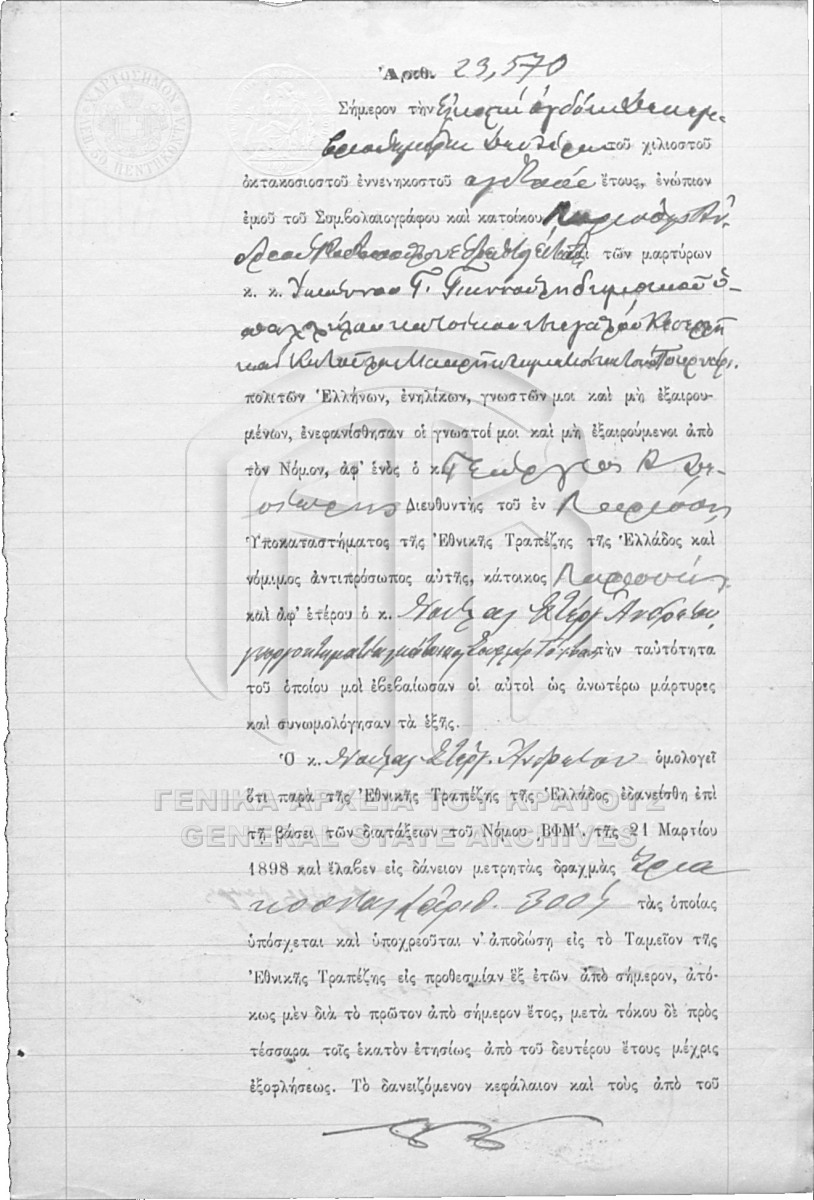 ΧΑΡΤΟΣΗΜΟΝ
Ἀριθ. 23,570
Σήμερον τὴν Εἰκοστὴν ὀγδόην Δεκεμ-
βρίου ἡμέραν Δευτέραν τοῦ χιλιοστοῦ
ὀκτακοσιοστοῦ ἐννενηκοστοῦ ὀγδόου ἔτους, ἐνώπιον
ἐμοῦ τοῦ Συμβολαιογράφου καὶ κατοίκου Λαρίσσης
ἐπὶ τῶν μαρτύρων
κ. κ. Ἰωάννου Γ. Γιαννούλη δημοτικοῦ ὑ-
παλλήλου κατοίκου
καὶ κτηματίου κατοίκου
πολιτῶν Ἑλλήνων, ἐνηλίκων, γνωστῶν μοι καὶ μὴ ἐξαιρου-
μένων, ἐνεφανίσθησαν οἱ γνωστοί μοι καὶ μὴ ἐξαιρούμενοι ἀπὸ
τὸν Νόμον, ἀφ' ἑνὸς ὁ κ. Γεώργιος
Διευθυντὴς τοῦ ἐν Λαρίσσῃ
Ὑποκαταστήματος τῆς Ἐθνικῆς Τραπέζης τῆς Ἑλλάδος καὶ
νόμιμος ἀντιπρόσωπος αὐτῆς, κάτοικος Λαρίσσης
καὶ ἀφ' ἑτέρου ὁ κ. Νούλας Στέργ. Ἀνδρέου
τὴν ταὐτότητα
τοῦ ὁποίου μοὶ ἐβεβαίωσαν οἱ αὐτοὶ ὡς ἀνωτέρω μάρτυρες
καὶ συνωμολόγησαν τὰ ἑξῆς.
Ὁ κ. Νούλας Στέργ. Ἀνδρέου ὁμολογεῖ
ὅτι παρὰ τῆς Ἐθνικῆς Τραπέζης τῆς Ἑλλάδος ἐδανείσθη ἐπὶ
ΓΕΝΙΚΑ ΑΡΧΕΙΑ ΤΟΥ ΚΡΑΤΟΥΣ
GENERAL STATE ARCHIVES
τῇ βάσει τῶν διατάξεων τοῦ Νόμου ͵ΒΦΜ΄. τῆς 21 Μαρτίου
1898 καὶ ἔλαβεν εἰς δάνειον μετρητὰς δραχμὰς τρια
κοσίας ἀριθ. 300 τὰς ὁποίας
ὑπόσχεται καὶ ὑποχρεοῦται ν' ἀποδώσῃ εἰς τὸ Ταμεῖον τῆς
Ἐθνικῆς Τραπέζης εἰς προθεσμίαν ἓξ ἐτῶν ἀπὸ σήμερον, ἀτό-
κως μὲν διὰ τὸ πρῶτον ἀπὸ σήμερον ἔτος, μετὰ τόκου δὲ πρὸς
τέσσαρα τοῖς ἑκατὸν ἐτησίως ἀπὸ τοῦ δευτέρου ἔτους μέχρις
ἐξοφλήσεως. Τὸ δανειζόμενον κεφάλαιον καὶ τοὺς ἀπὸ τοῦ